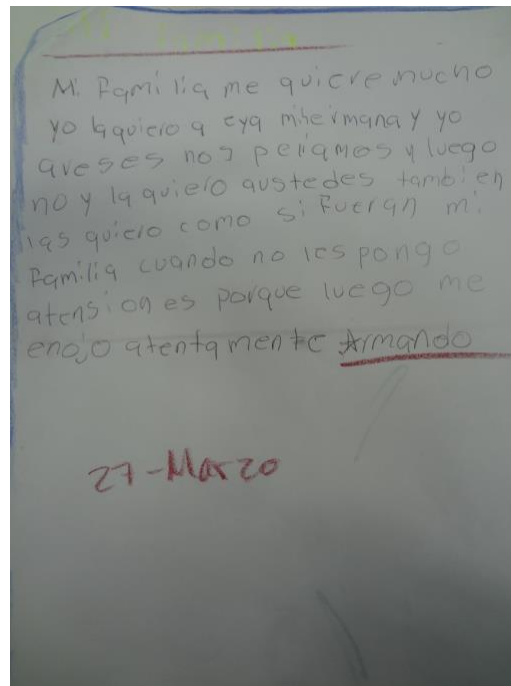 Mi Familia
Mi Familia me quiere mucho
yo laquiero a eya mihermana y yo
aveses nos peliamos y luego
no y la quiero austedes tambien
las quiero como si Fueran mi
Familia cuando no les pongo
atension es porque luego me
enojo atentamente Armando
27-Marzo